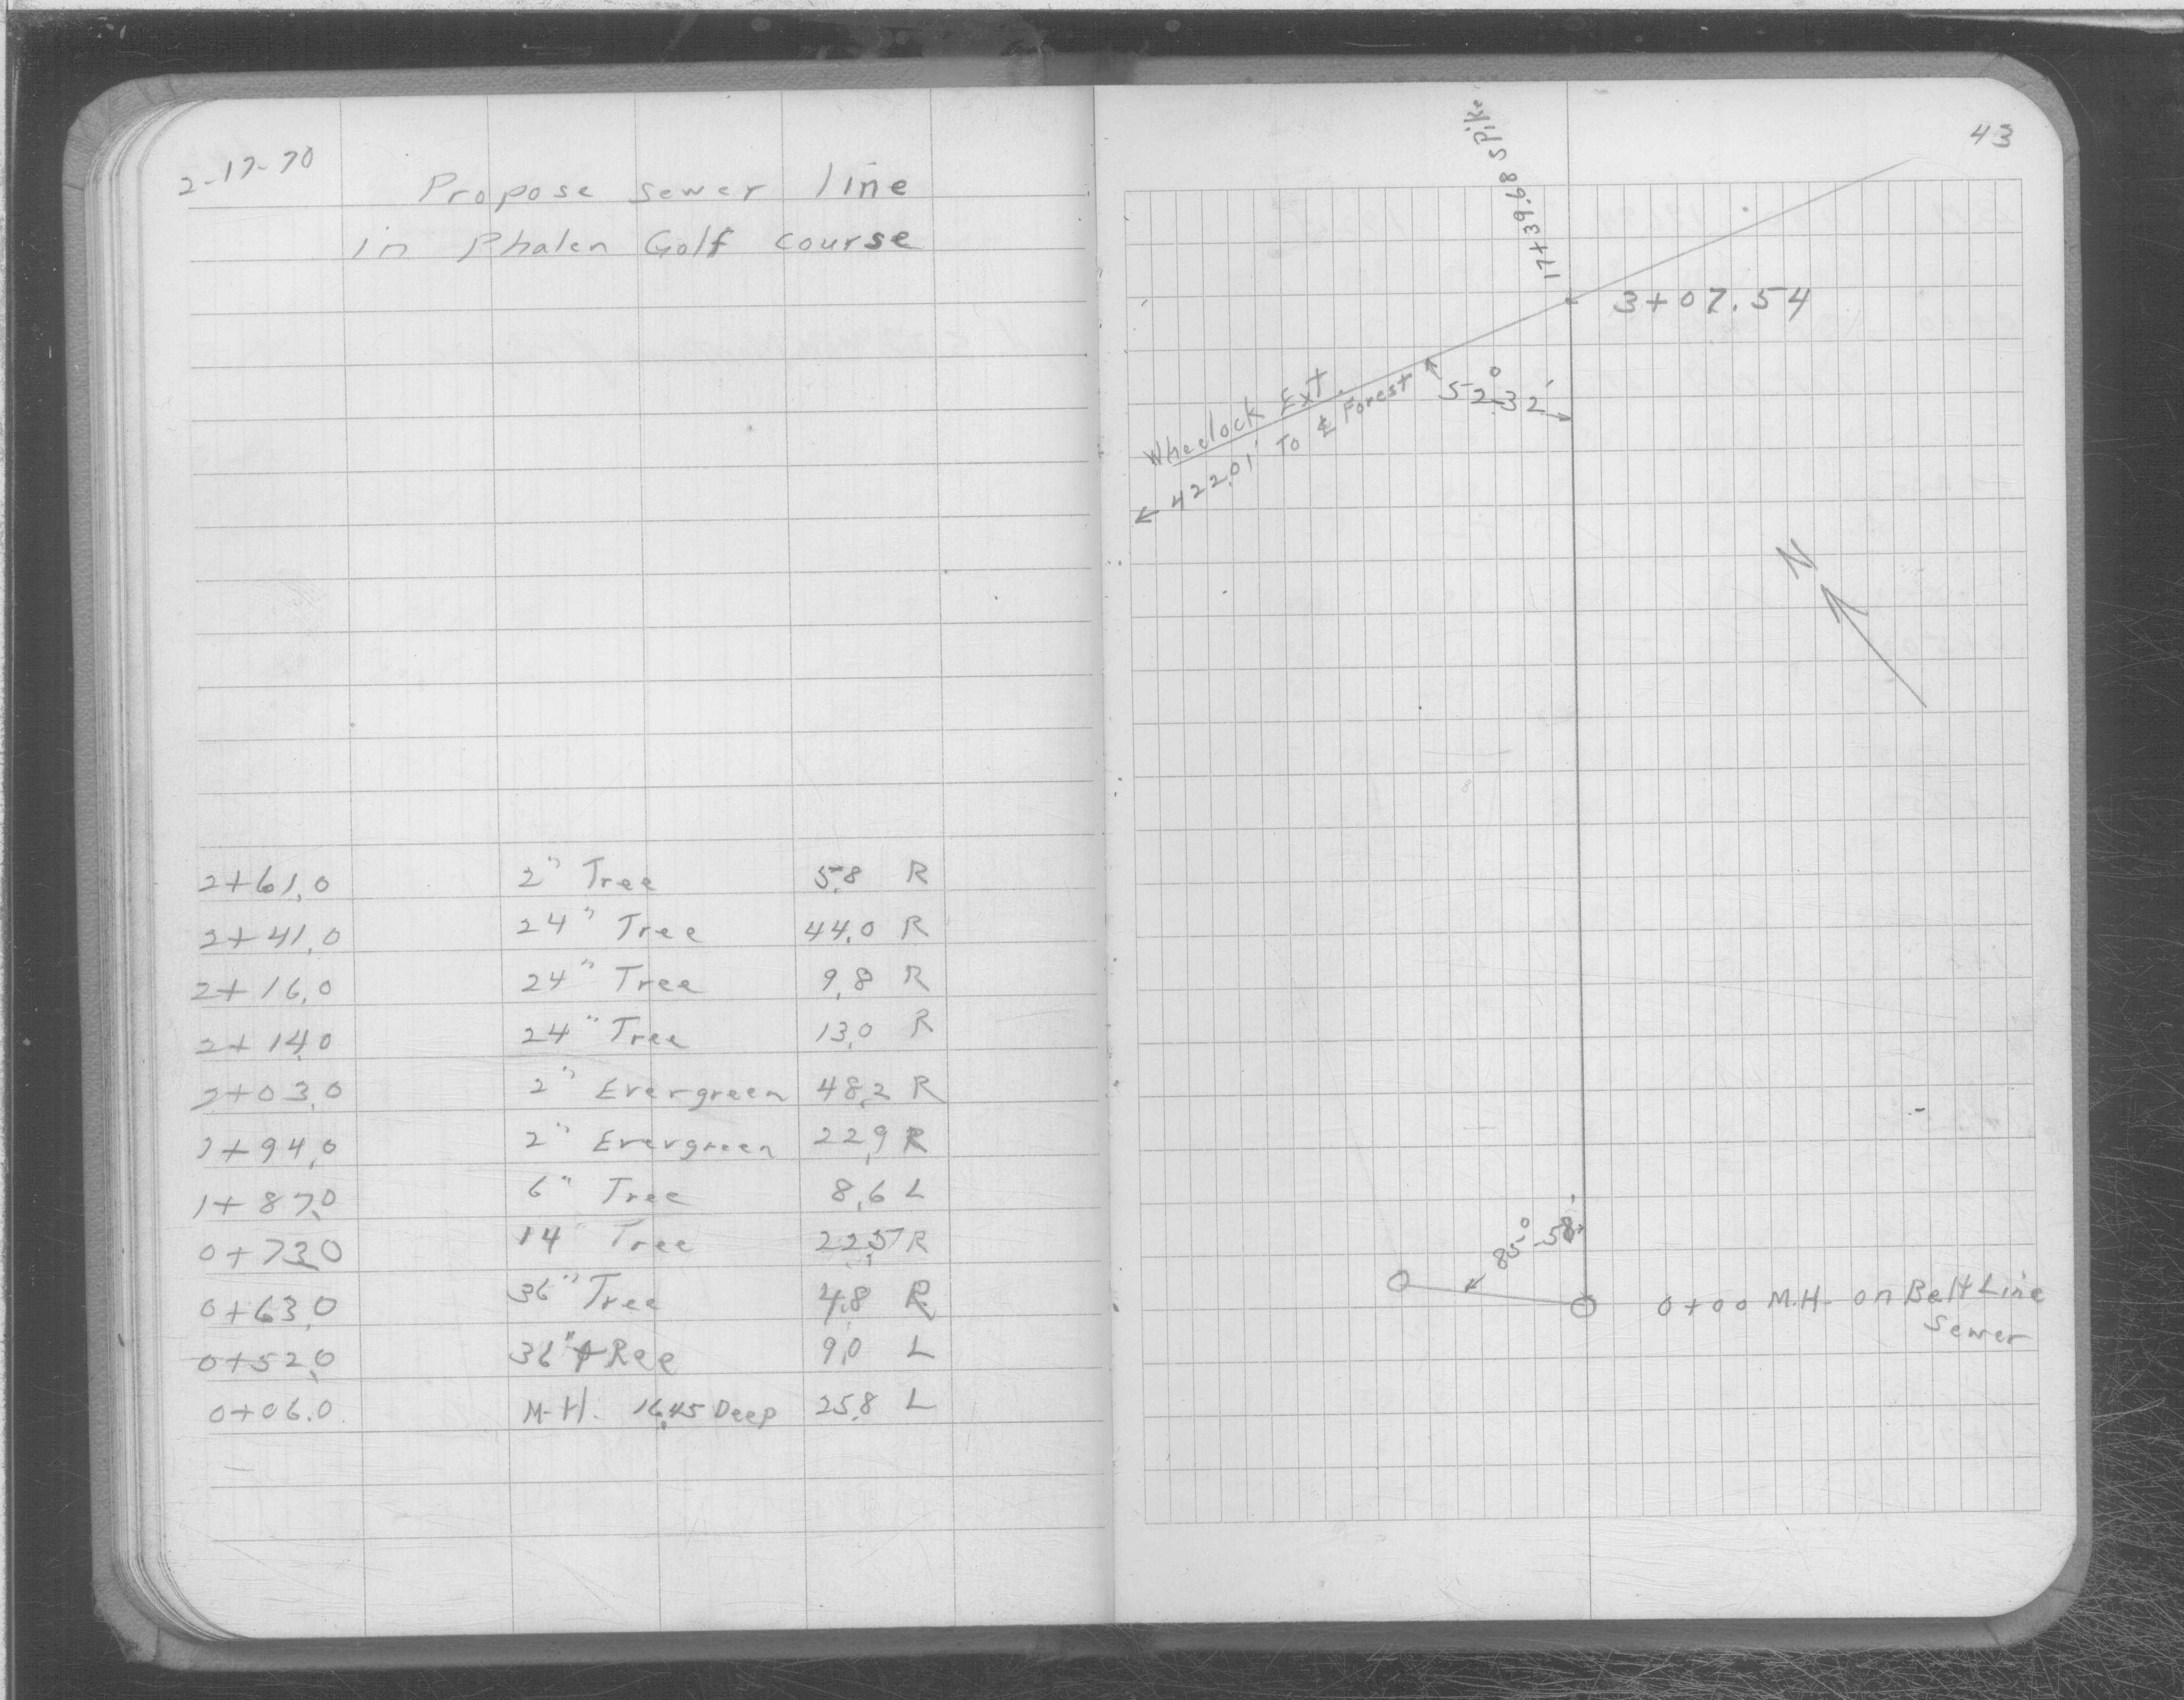 2-17-70
Propose sewer line
in Phalen Golf course
2+61.0 2" Tree 5.8 R
2+41.0 24" Tree 44.0 R
2+16.0 24" Tree 9.8 R
2+14.0 24" Tree 13.0 R
2+03.0 2" Evergreen 48.2 R
1+94.0 2" Evergreen 22.9 R
1+87.0 6" Tree 8.6 L
0+73.0 14" Tree 22.5 R
0+63.0 36" Tree 4.8 R
0+52.0 36" tRee 9.0 L
0+06.0 M-H. 16.45 Deep 25.8 L
43
17+39.68 spike
3+07.54
52°-32'
Wheelock Ext.
← 422.01' To ℄ Forest
N
85°-58'
0+00 M.H. on Belt Line
Sewer